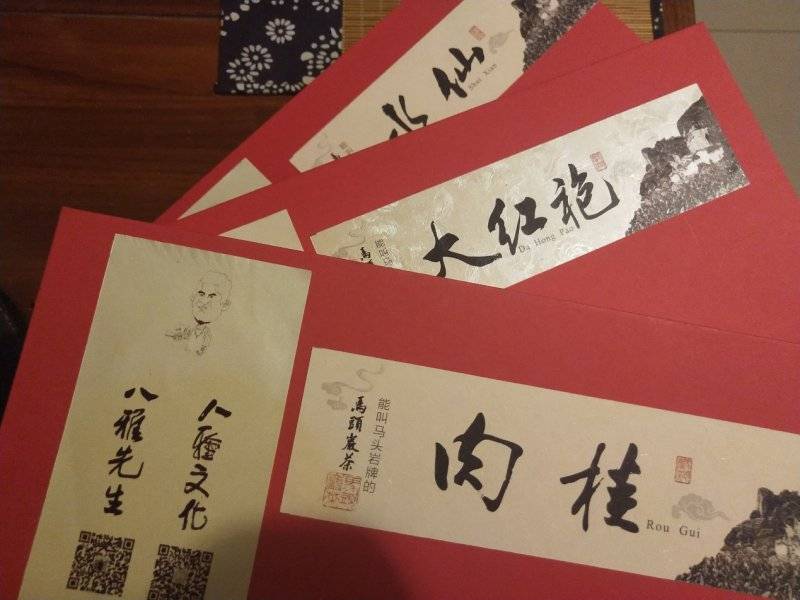 水仙
Shui Xian
大红袍
Da Hong Pao
肉桂
Rou Gui
能叫马头岩牌的
馬頭岩茶
八雅文化
八雅先生